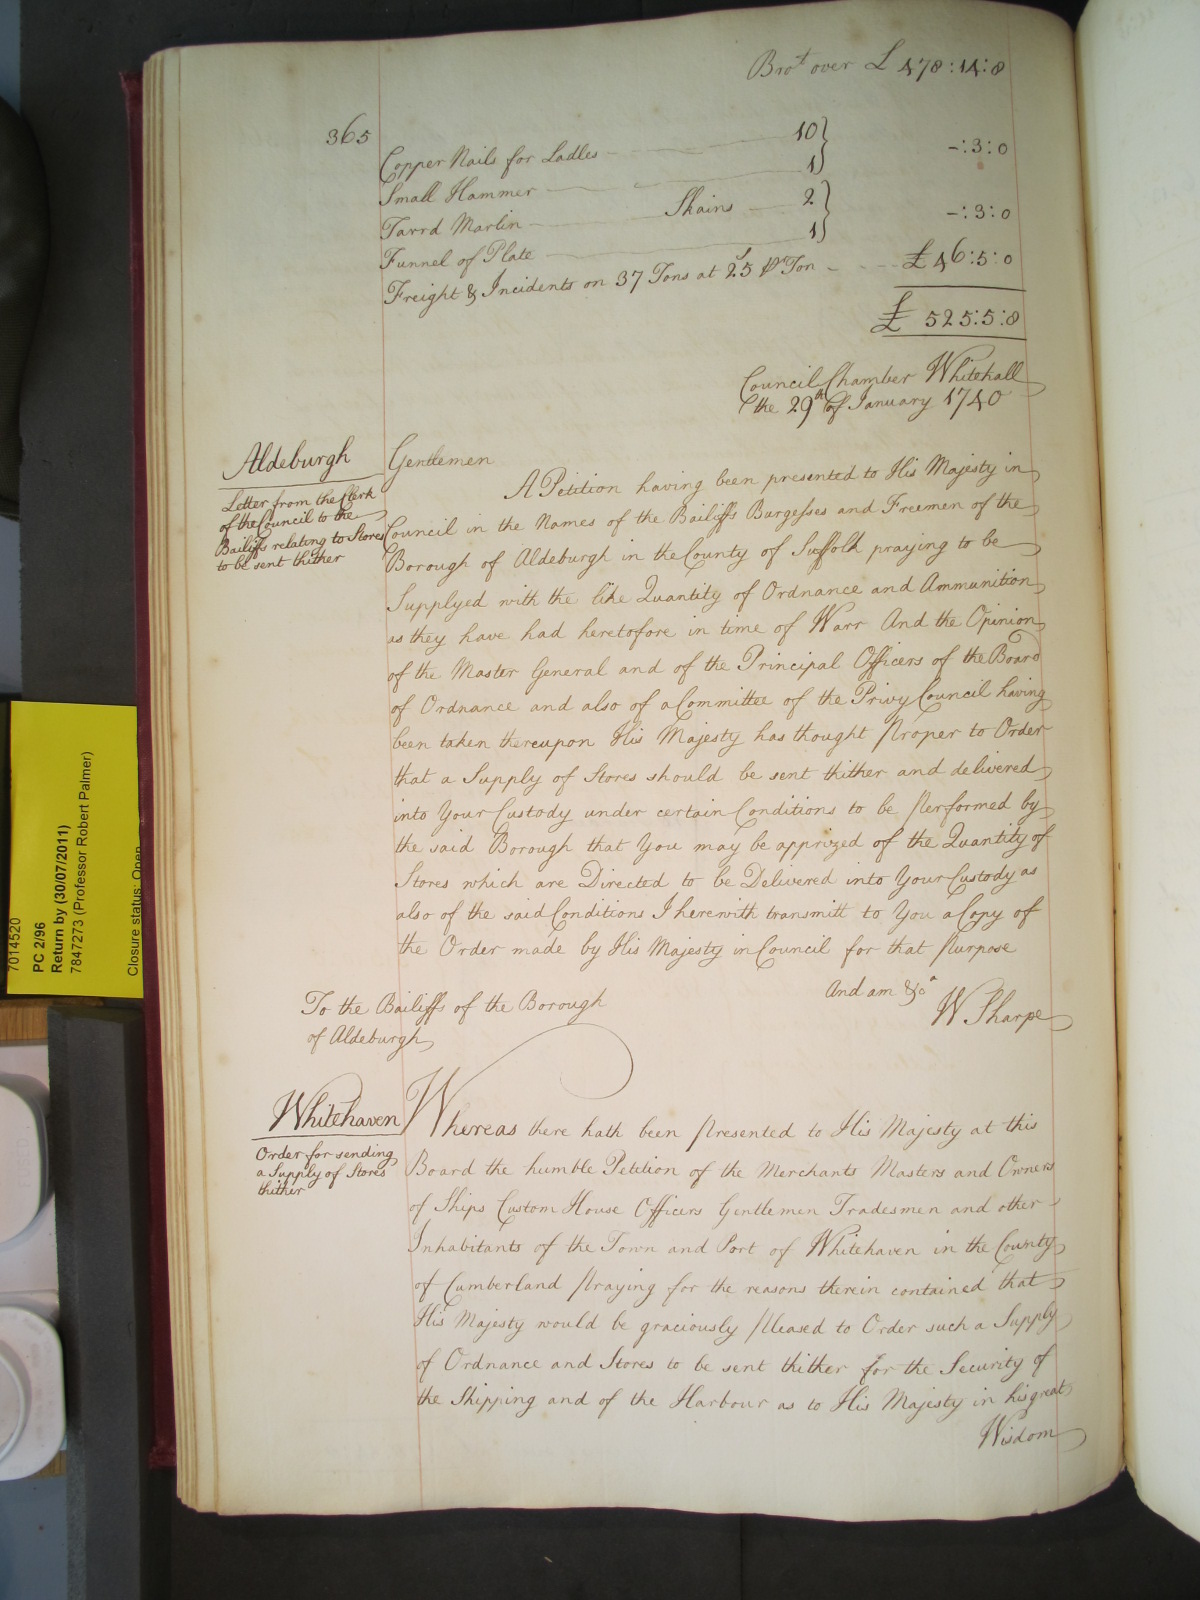 Brot over £ 478:14:8
365
Copper Nails for Ladles 10
Small Hammer 1 -:3:0
Tarrd Marlin Skains 2
Funnel of Plate 1 -:3:0
Freight & Incidents on 37 Tons at 25s ⅌ Ton £46:5:0
£ 525:5:8
Council Chamber Whitehall
the 29th of January 1740
Aldeburgh
Letter from the Clerk
of the Council to the
Bailiffs relating to Stores
to be sent thither
Gentlemen
A Petition having been presented to His Majesty in
Council in the Names of the Bailiffs Burgesses and Freemen of the
Borough of Aldeburgh in the County of Suffolk praying to be
Supplyed with the like Quantity of Ordnance and Ammunition
as they have had heretofore in time of Warr And the Opinion
of the Master General and of the Principal Officers of the Board
of Ordnance and also of a Committee of the Privy Council having
been taken thereupon His Majesty has thought proper to Order
that a Supply of Stores should be sent thither and delivered
into Your Custody under certain Conditions to be performed by
the said Borough that You may be apprized of the Quantity of
Stores which are Directed to be Delivered into Your Custody as
also of the said Conditions I herewith transmitt to You a Copy of
the Order made by His Majesty in Council for that purpose
And am &ca
W Sharpe
To the Bailiffs of the Borough
of Aldeburgh
Whitehaven
Order for sending
a Supply of Stores
thither
Whereas there hath been presented to His Majesty at this
Board the humble Petition of the Merchants Masters and Owners
of Ships Custom House Officers Gentlemen Tradesmen and other
Inhabitants of the Town and Port of Whitehaven in the County
of Cumberland praying for the reasons therein contained that
His Majesty would be graciously pleased to Order such a Supply
of Ordnance and Stores to be sent thither for the Security of
the Shipping and of the Harbour as to His Majesty in his great
Wisdom
7014520
PC 2/96
Return by (30/07/2011)
7847273 (Professor Robert Palmer)
Closure status: Open